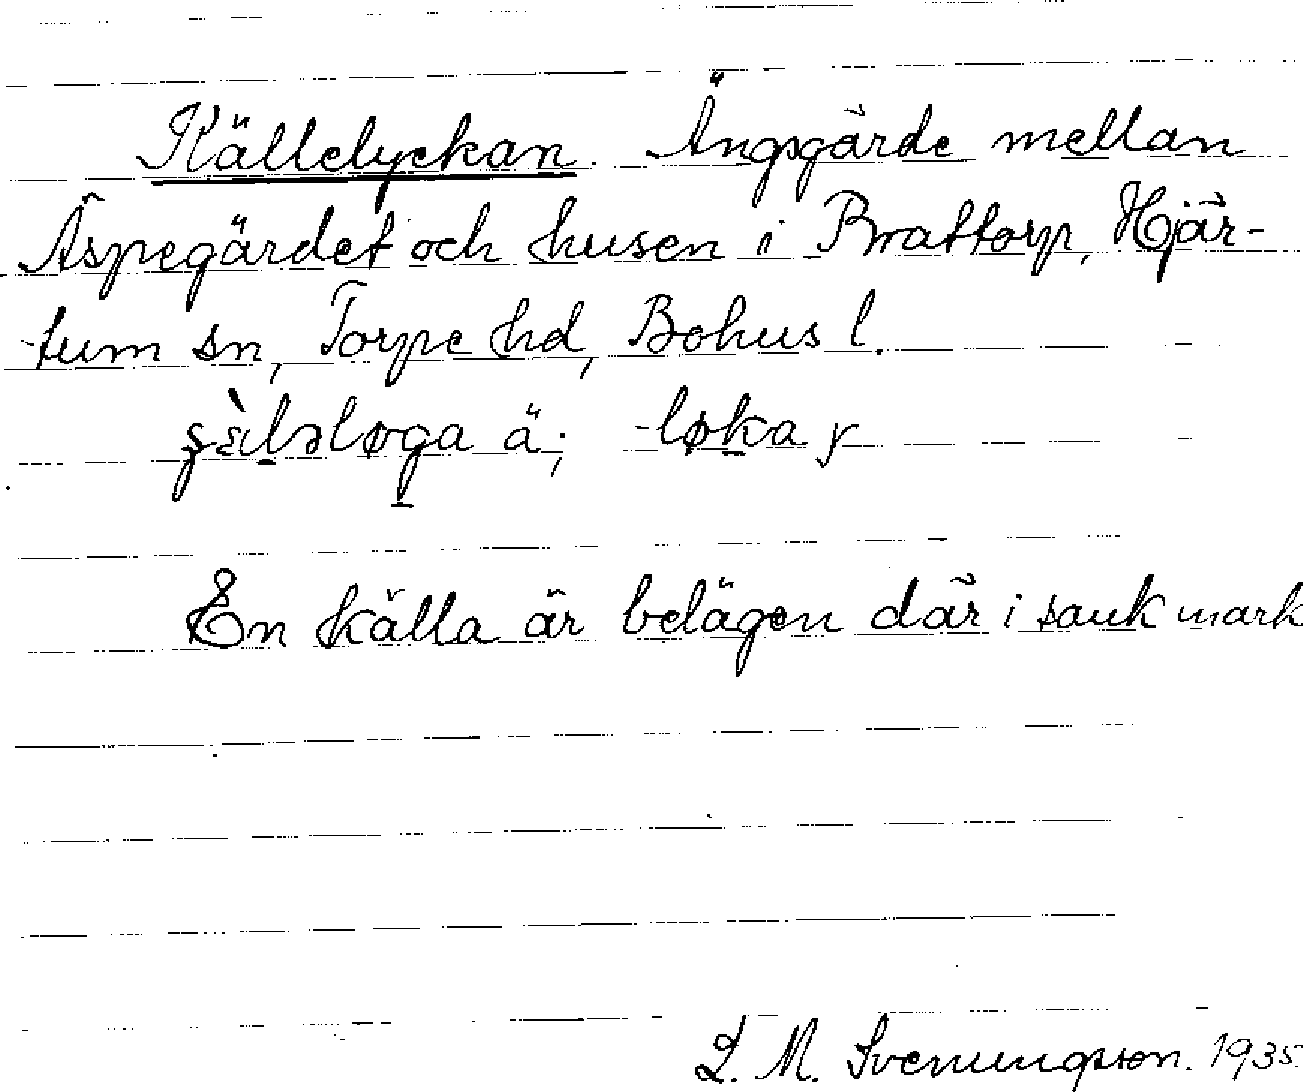 Källelyckan. Ängsgärde mellan
Äspegärdet och husen i Brattorp, Hjär-
tum sn, Torpe hd, Bohus l.
ä; -løka y
En källa är belägen där i sank mark
L. M. Svenungsson. 1935.